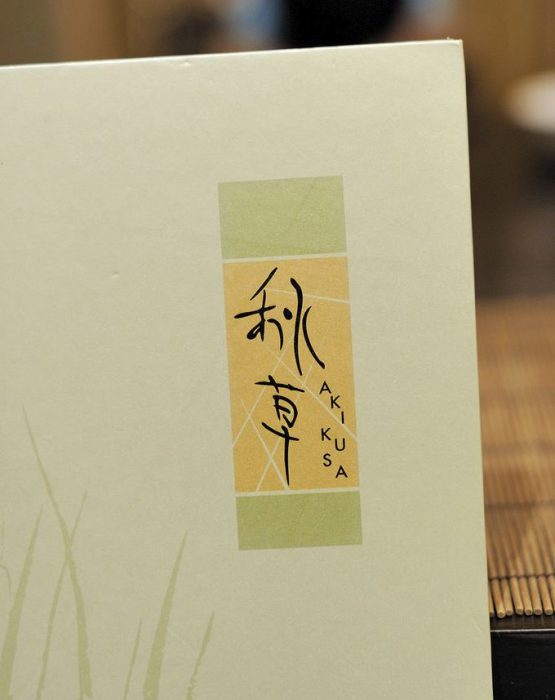 秋草
AKIKUSA